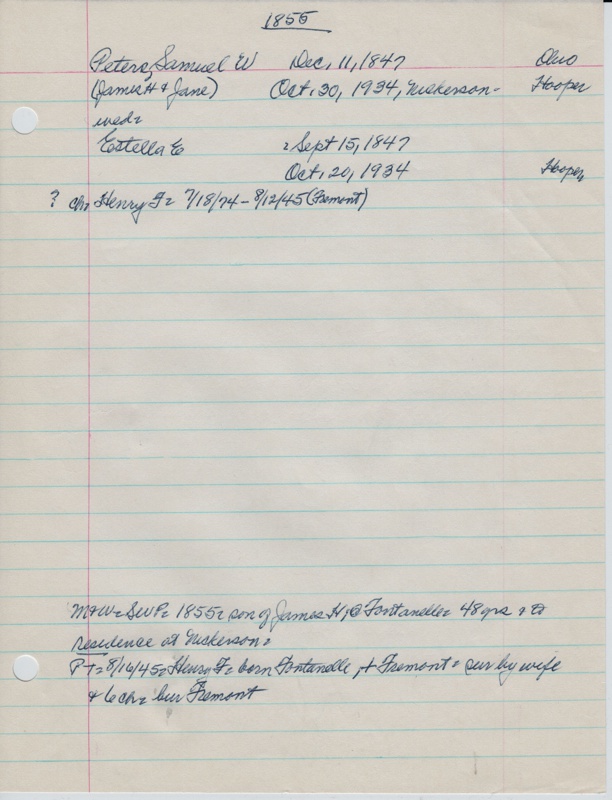 1855
Peters, Samuel W Dec, 11, 1847 Ohio
(James H & Jane) Oct, 30, 1934, Nickerson- Hooper
wed=
Estella E = Sept 15, 1847
Oct, 20, 1934 Hooper
? ch, Henry F= 7/18/74 - 8/12/45 (Fremont)
M&W= SWP= 1855= son of James H, @ Fontanelle= 48 yrs + to
residence at Nickerson=
PT= 8/16/45= Henry F= born Fontanelle, + Fremont= sur by wife
& 6 ch= bur Fremont